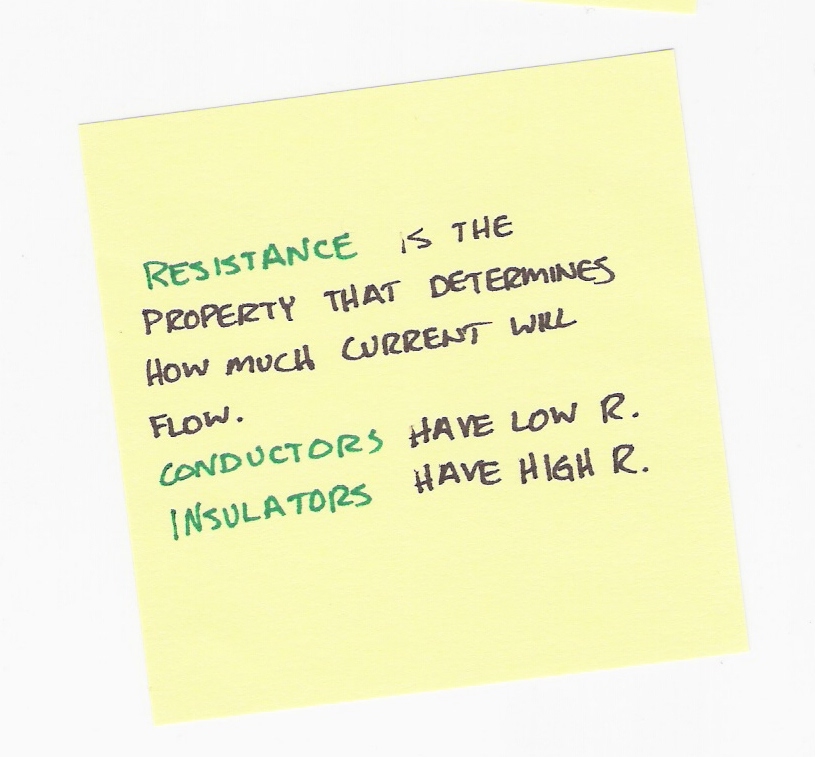 RESISTANCE IS THE
PROPERTY THAT DETERMINES
HOW MUCH CURRENT WILL
FLOW.
CONDUCTORS HAVE LOW R.
INSULATORS HAVE HIGH R.